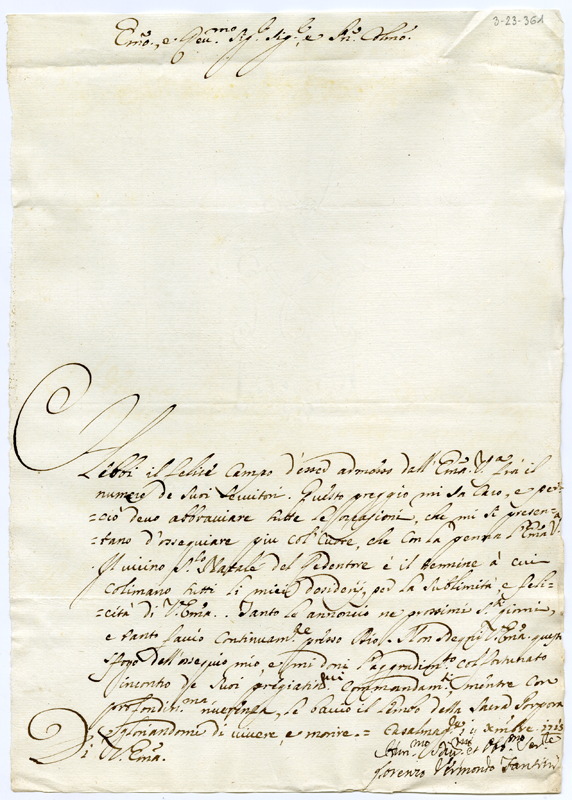 3-23-361
Emo, e Reu.mo Sig.r Sig.r, e Pne Colmo.
Hebbi il felice Campo d'esser admesso dall' Ema. V.a trà il
numero de Suoi Seruitori. Questo preggio mi fa caro, e per=
=ciò deuo abbracciare tutte le occasioni, che mi si presen=
=tano d'ossequiare più col' Cuore, che con la penna l'Ema. V.
Il uicino S.to Natale del Redentore è il termine à cui
colimano tutti li miei desiderij, per la sublimità, e feli=
=cità di V. Ema. Tanto le annoncio ne prossimi S.ti giorni,
e tanto faccio continuam.te presso Dio. Non sdegni V. Ema. questo
sfogo dell' ossequio mio, e mi doni l'aggradim.to col fortunato
incontro de Suoi pregiatis.mi Commandam.ti, mentre con
profondis.ma riuerenza, le baccio il lembo della Sacra Porpora
e gloriandomi di uiuere, e morire.= Casalmag.re, 9 Xmbre 1713
Di V. Ema.
Hum.mo Deu.mo et Obb.mo Ser.re
Lorenzo Vermondo Fantini